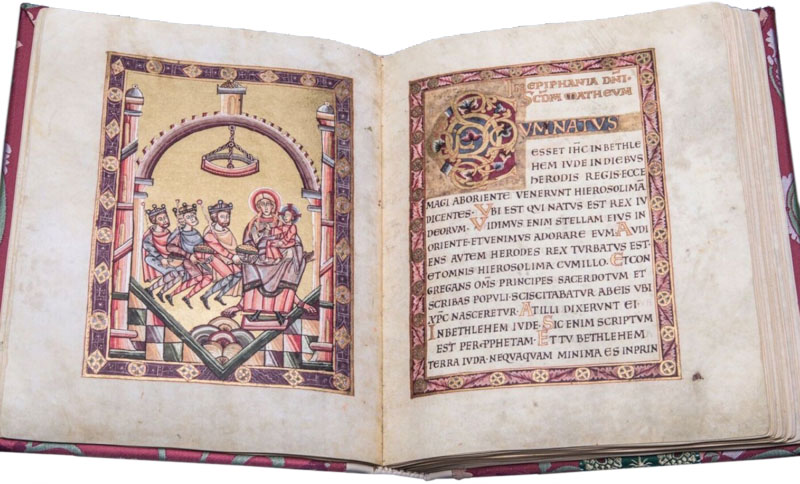 EPIPHANIA DN̄I
SCDM MATHEUM
CUM NATUS
ESSET IHC IN BETHLE
HEM IUDE IN DIEBUS
HERODIS REGIS·ECCE
MAGI ABORIENTE VENERUNT HIEROSOLIMĀ
DICENTES· VBI EST QUI NATUS EST REX IV
DEORUM· VIDIMUS ENIM STELLAM EIUS IN
ORIENTE·ET VENIMUS ADORARE EUM· AUDI
ENS AUTEM HERODES REX TURBATUS EST·
ET OMNIS HIEROSOLIMA CUM ILLO· ET CON
GREGANS OMS̄ PRINCIPES SACERDOTUM ET
SCRIBAS POPULI· SCISCITABATUR AB EIS UBI
XPC̄ NASCERETUR· AT ILLI DIXERUNT EI·
IN BETHLEHEM IUDE· SIC ENIM SCRIPTUM
EST PER·PPHETAM· ET TU BETHLEHEM·
TERRA IUDA· NEQUAQUAM MINIMA ES IN PRIN